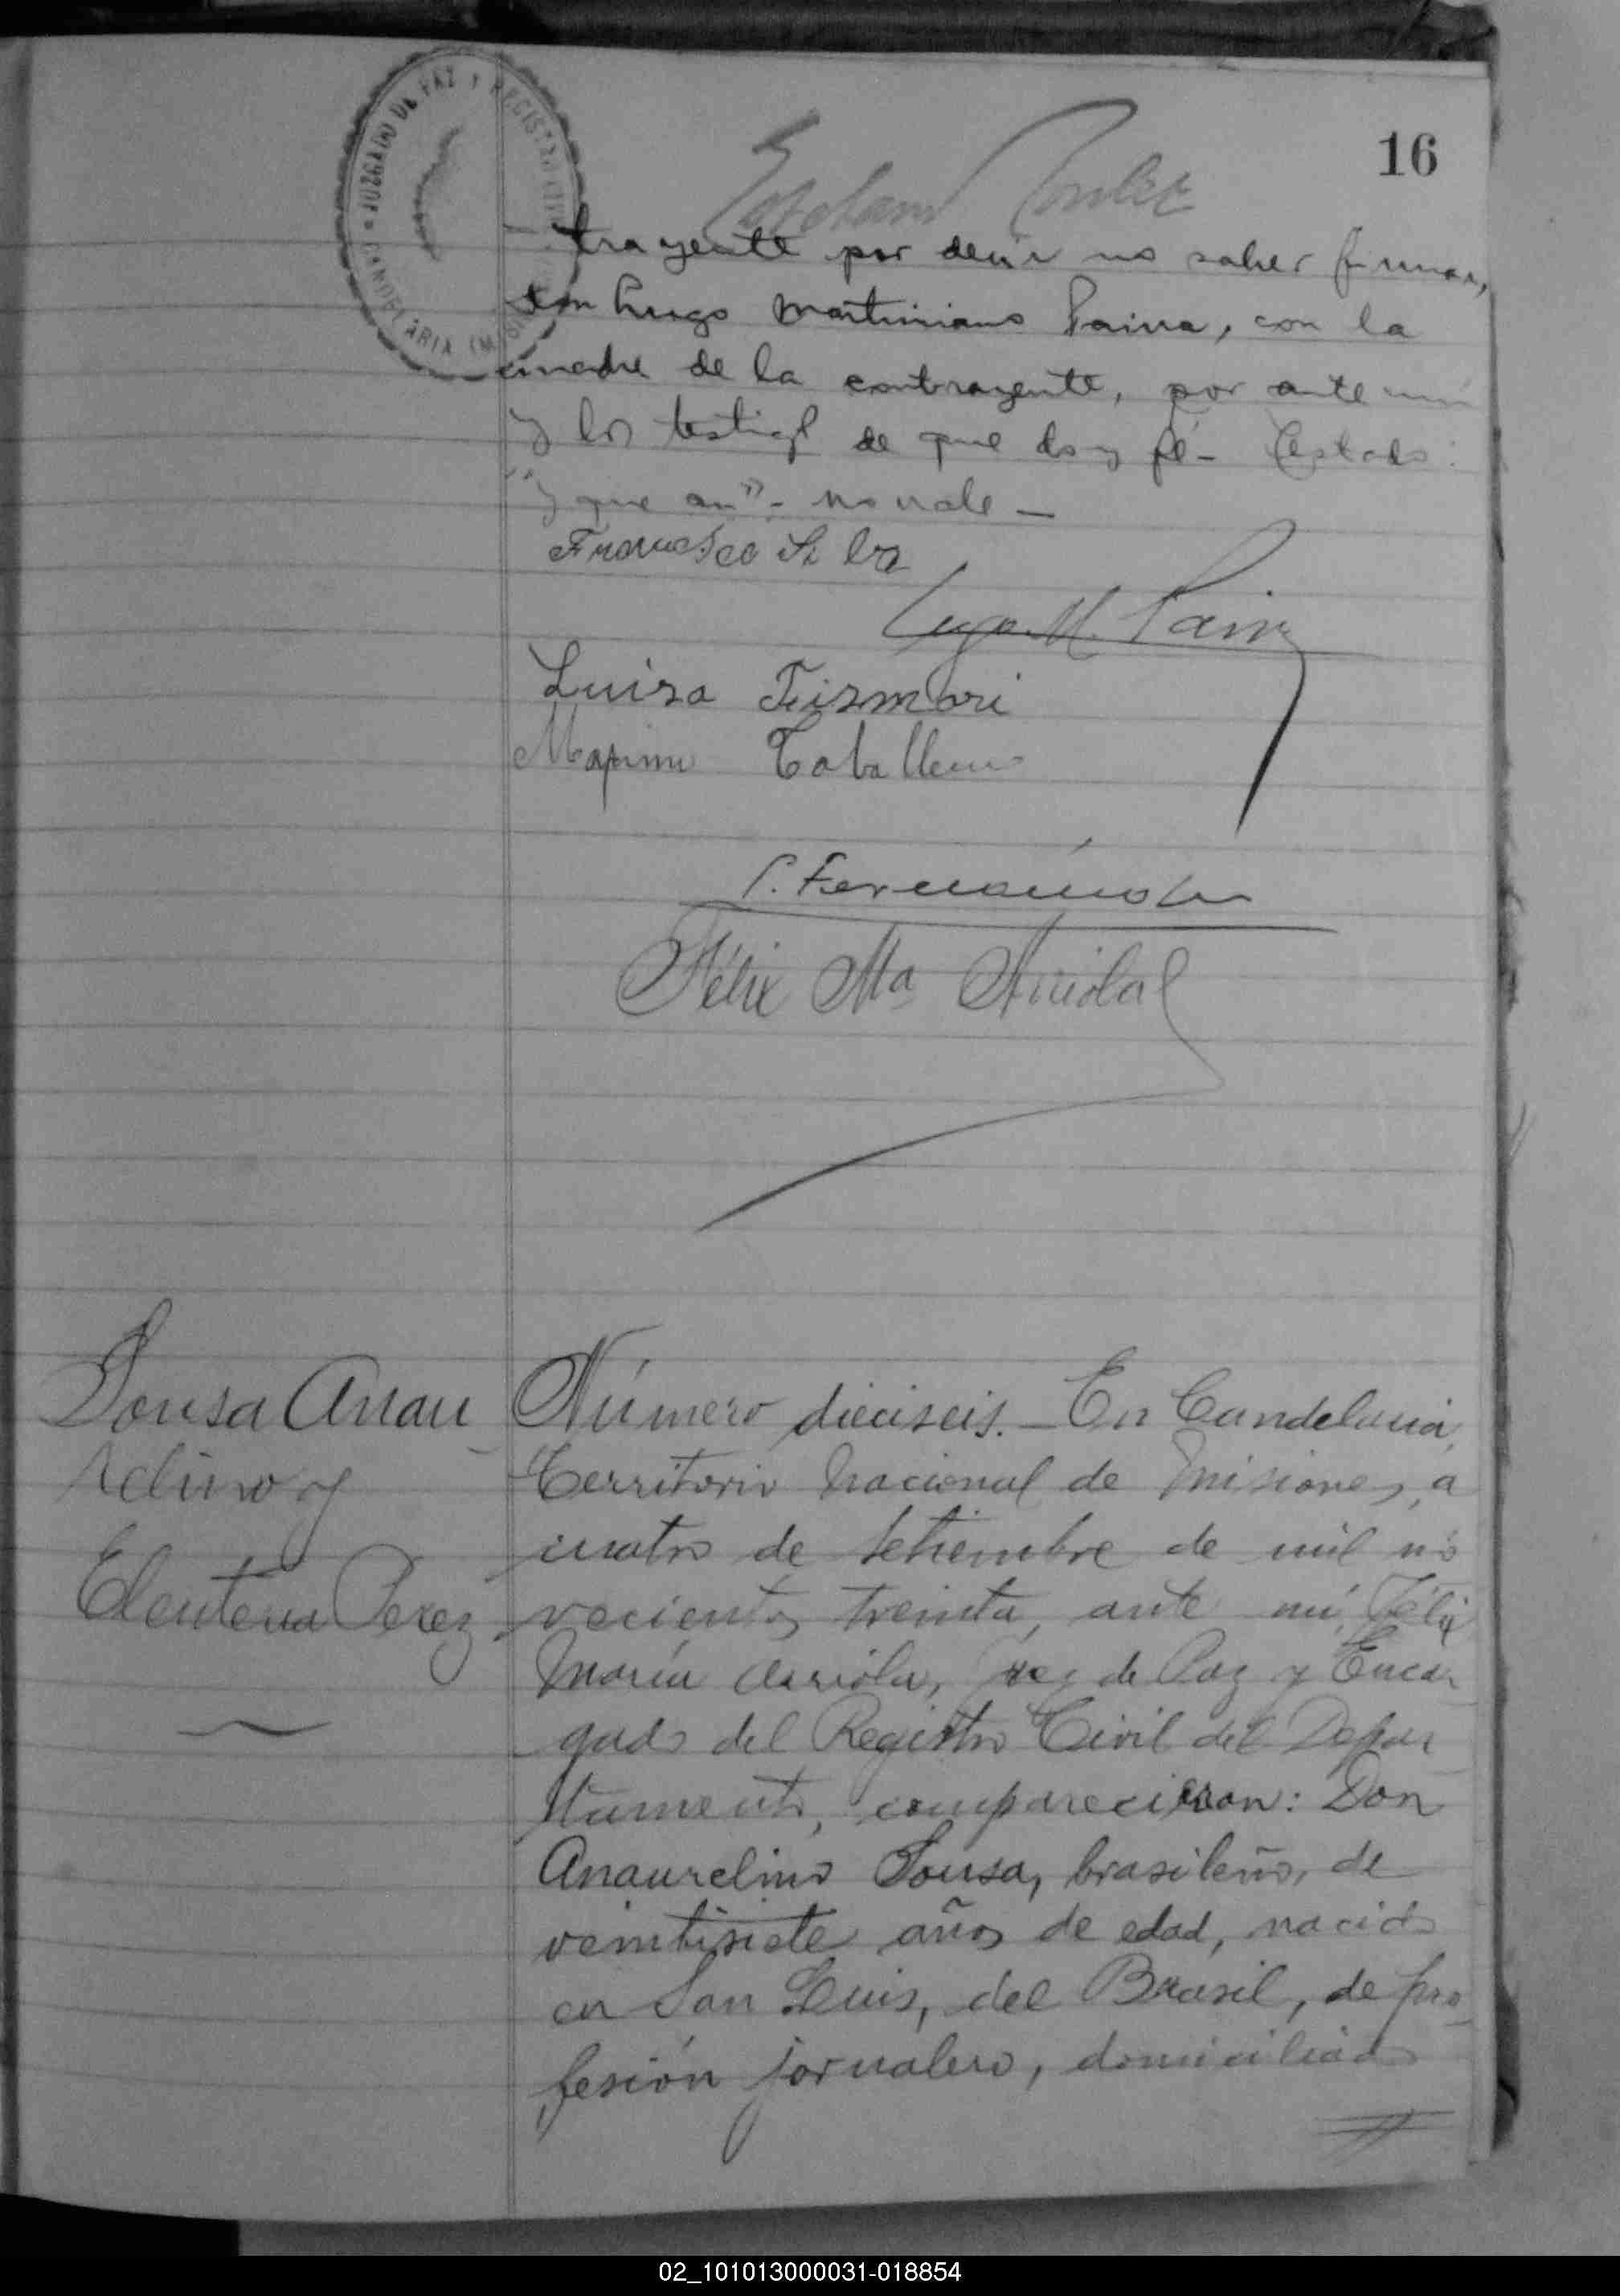 16
JUZGADO DE PAZ Y REGISTRO CIVIL
CANDELARIA
Esteban
trayente por decir no saber firmar,
don Hugo Martiniano Paiva, con la
madre de la contrayente, por ante mí
y los testigos de que doy fé - Testado:
"y que an" - no vale -
Francisco Silva
Hugo M. Paiva
Luisa Tismari
Maximo Caballero
P. Fernández
Félix Ma Arriola
Sousa Anau
relino y
Eleuteria Perez
Número dieciseis. - En Candelaria,
Territorio Nacional de Misiones, a
cuatro de Setiembre de mil no
vecientos treinta, ante mí, Félix
María Arriola, Juez de Paz y Encar
gado del Registro Civil del Depar
tamento, comparecieron: Don
Anaurelino Sousa, brasileño, de
veintisiete años de edad, nacido
en San Luis, del Brasil, de pro
fesión jornalero, domiciliado
02_101013000031-018854